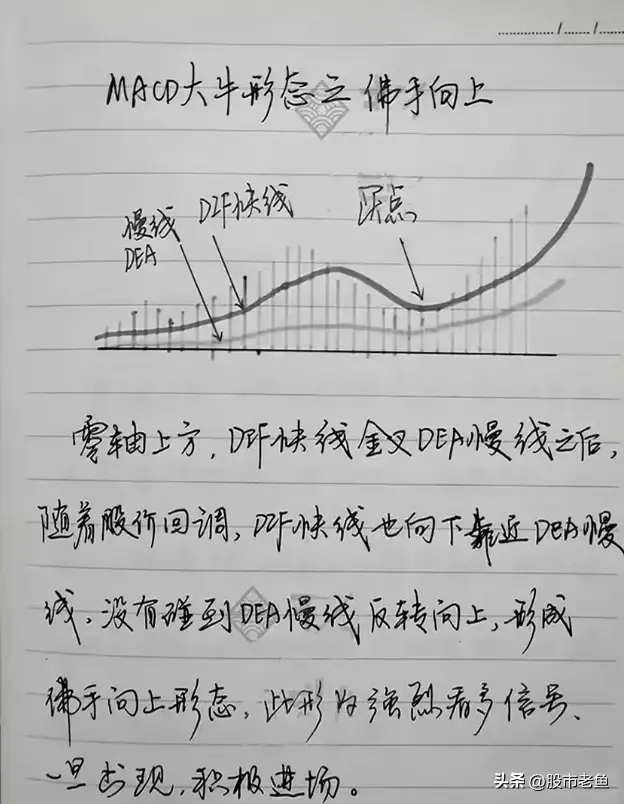 MACD大牛形态之佛手向上
慢线
DEA
DIF快线
买点
零轴上方,DIF快线金叉DEA慢线之后,
随着股价回调,DIF快线也向下靠近DEA慢
线,没有碰到DEA慢线反转向上,形成
佛手向上形态,此形为强烈看多信号、
一旦出现,积极进场。
头条 @股市老鱼